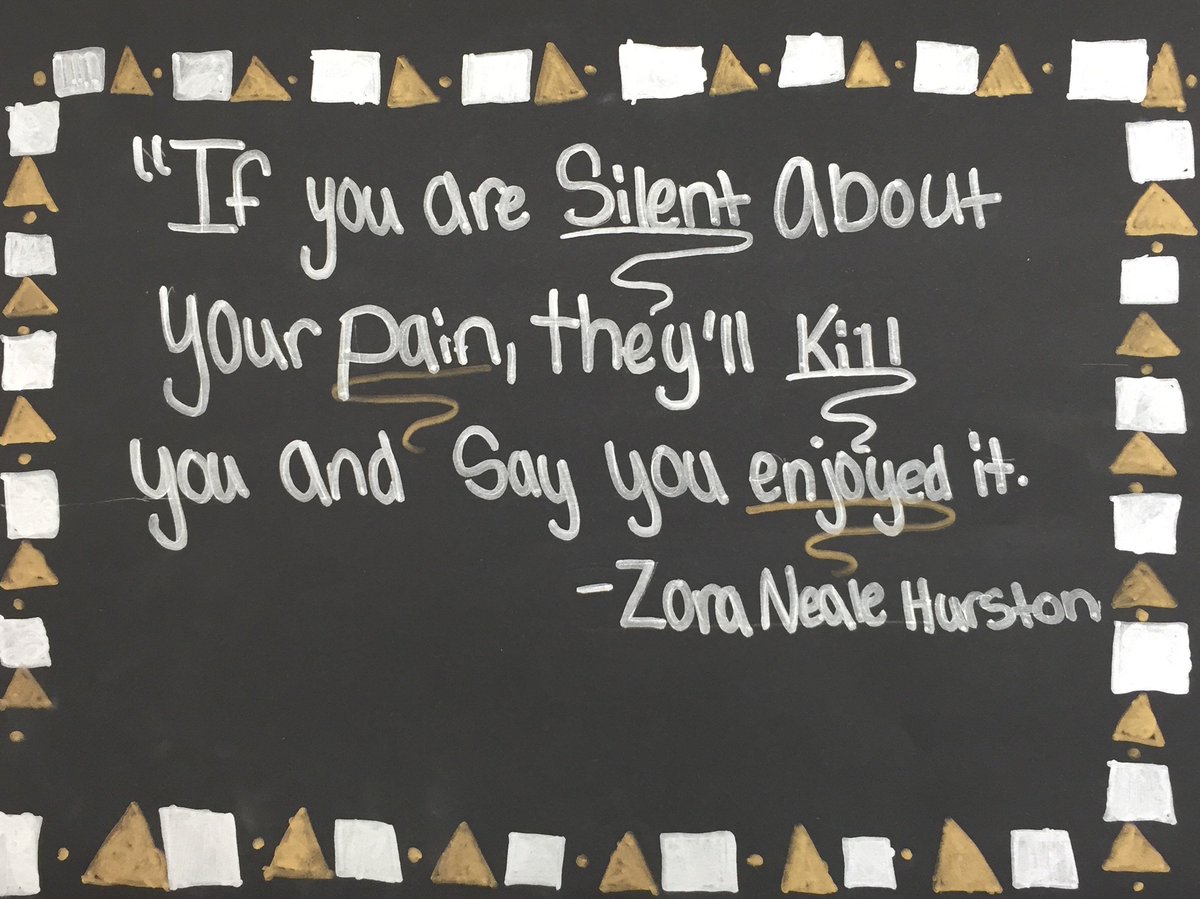 "If you are Silent About
your pain, they'll Kill
you and Say you enjoyed it.
-Zora Neale Hurston